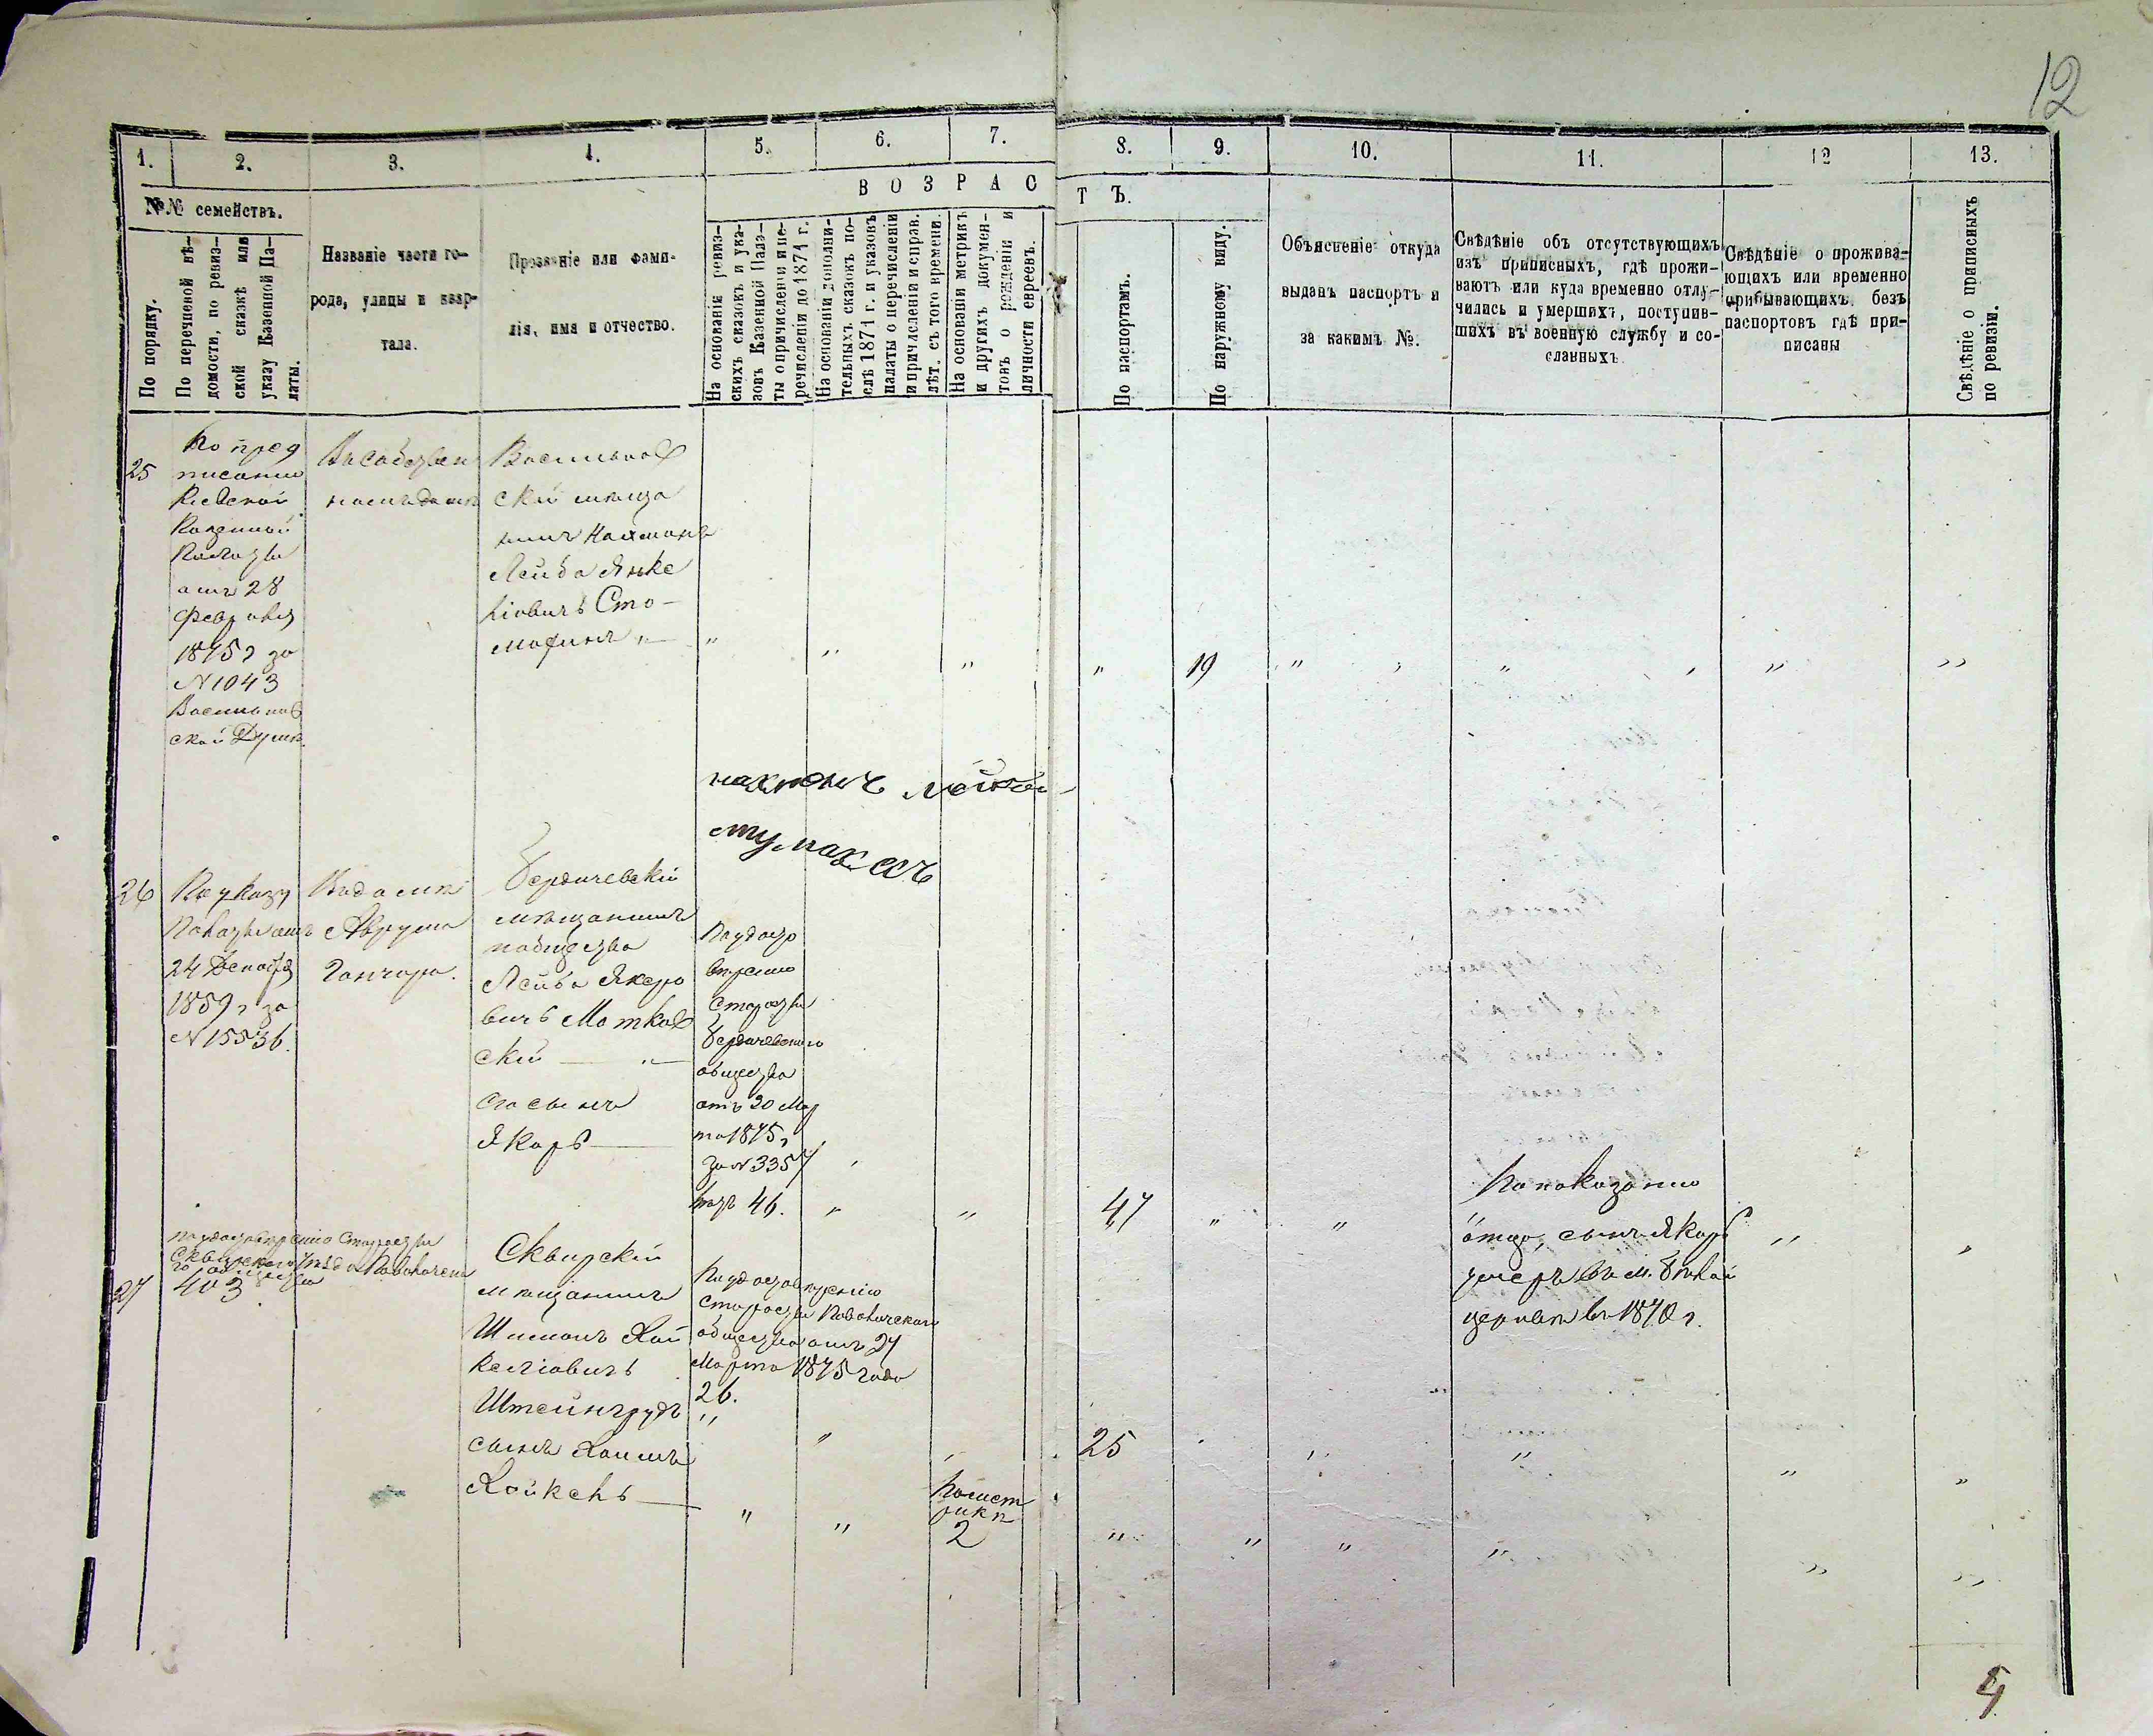 12
1. 2. 3. 4. 5. 6. 7. 8. 9. 10. 11. 12 13.
ВОЗРАСТЪ.
№№ семействъ.
По порядку.
По перечневой вѣ-
домости, по ревиз-
ской сказкѣ или
указу Казенной Па-
латы.
Названіе части го-
рода, улицы и квар-
тала.
Прозваніе или фами-
лія, имя и отчество.
На основаніи ревиз-
скихъ сказокъ и ука-
зовъ Казенной Пала-
ты о причисленіи и пе-
речисленіи до 1871 г.
На основаніи дополни-
тельныхъ сказокъ по-
слѣ 1871 г. и указовъ
палаты о перечисленіи
и причисленіи и справ.
лѣт. съ того времени.
На основаніи метрикъ
и другихъ докумен-
товъ о рожденіи и
личности евреевъ.
По паспортамъ.
По наружному виду.
Объясненіе откуда
выданъ паспортъ и
за какимъ №.
Свѣдѣніе объ отсутствующихъ
изъ приписныхъ, гдѣ прожи-
ваютъ или куда временно отлу-
чились и умершихъ, поступив-
шихъ въ военную службу и со-
сланныхъ.
Свѣдѣніе о прожива-
ющихъ или временно
прибывающихъ безъ
паспортовъ гдѣ при-
писаны
Свѣдѣніе о приписныхъ
по ревизіи.
25
По пред
писанію
Кіевской
Казенной
Палаты
отъ 28
Февраля
1875 г за
N 1043
Васильков
ской Думы.
В собствен
номъ домѣ
Васильков
скій мѣща
нинъ Нахманъ
Лейба Янке
ліовичъ Сто-
" " " " 19 " " " "
26
По указу
Палаты отъ
24 Декабря
1859 г за
N 15536.
В домѣ
Аврума
Гончара.
Бердичевскій
мѣщанинъ
Лейба Якеро
вичъ Мотков
скій
его сынъ
Якеръ
По удосто
вѣренію
Старосты
Бердичевскаго
общества
отъ 20 Мар
та 1875 г
за N 3357
46. " " 47 " " " "
По показанію
отца, сынъ Якеръ
умеръ въ м. Бѣлой
церкви въ 1870 г.
27
по удостовѣренію Старосты
Сквирскаго уѣзда Паволочска
го общества
403
Сквирскій
мѣщанинъ
Шимонъ Хай
келіовичъ
Штейнгрудъ
сынъ Хаимъ
Хайкель
По удостовѣренію
старосты Паволочскаго
общества отъ 27
Марта 1875 года
26.
" " 25 " " " "
По мет
рикѣ
2
" " " " " " " "